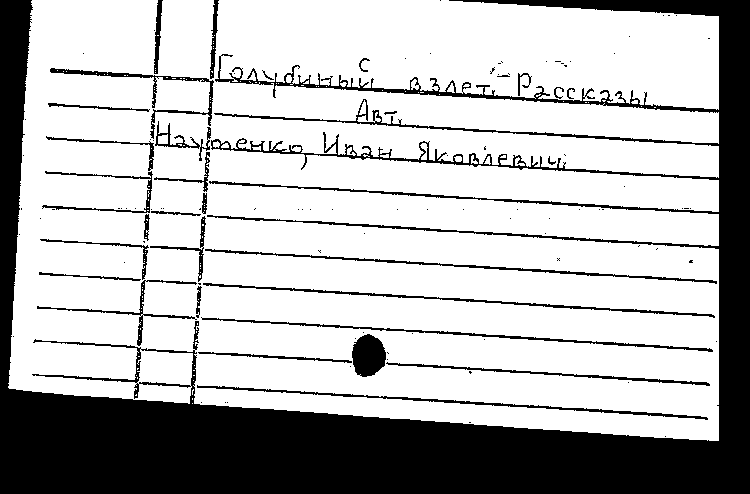 с
Голубиный взлет. Рассказы
Авт.
Наутенко, Иван Яковлевич.